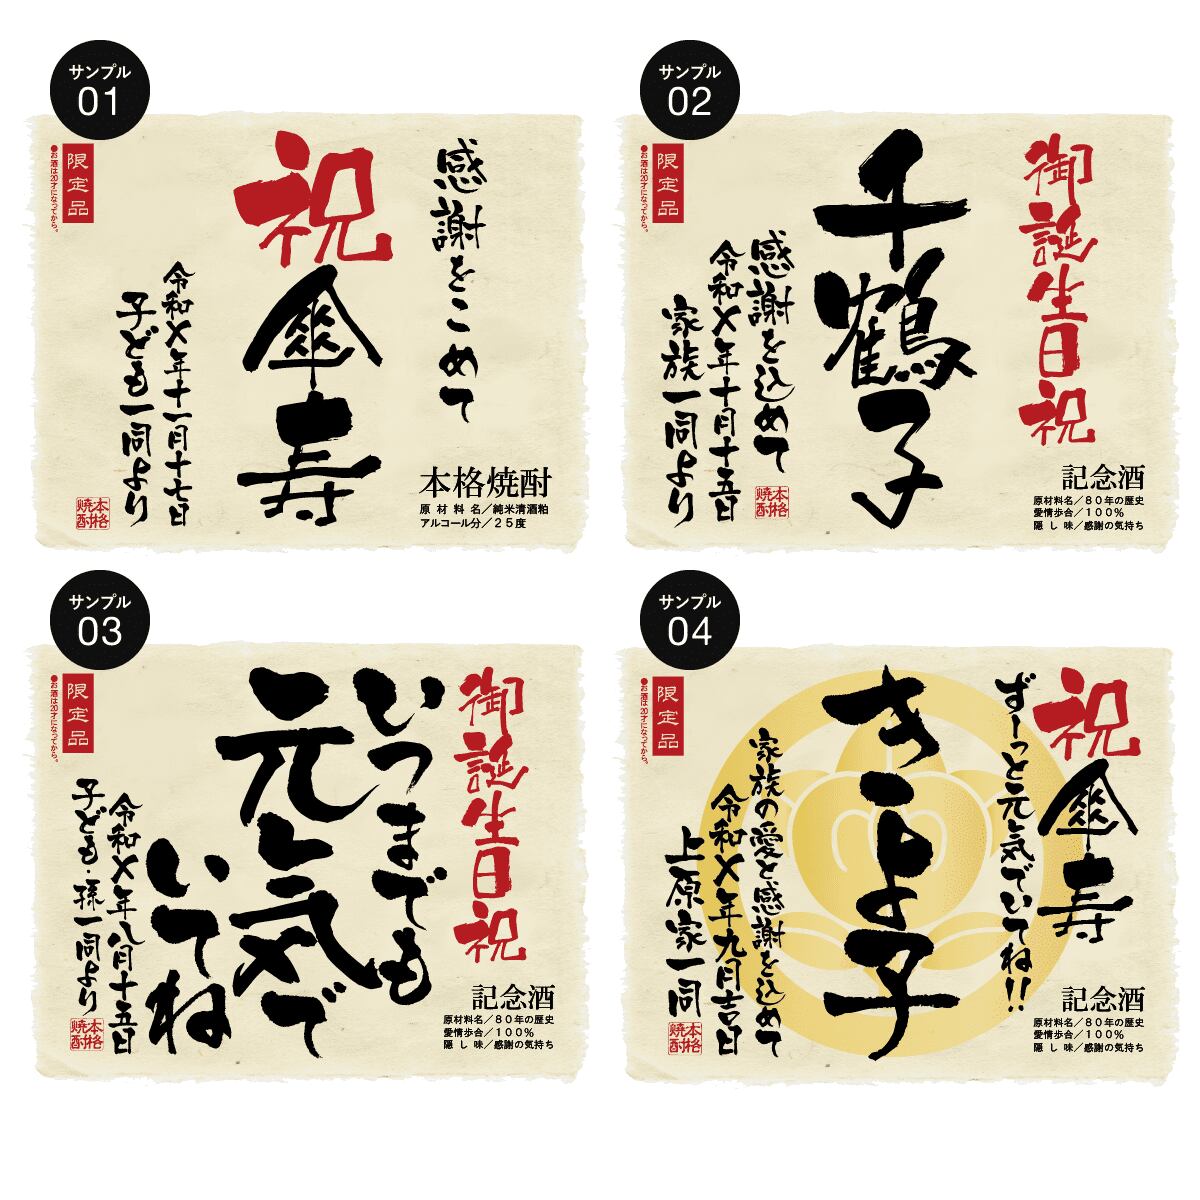 サンプル
01
感謝をこめて
祝
傘寿
令和〆年十一月十七日
子ども一同より
限定品
●お酒は20才になってから。
本格焼酎
原材料名／純米清酒粕
アルコール分／25度
本格焼酎
サンプル
02
御誕生日祝
千鶴子
感謝を込めて
令和〆年十月十五日
家族一同より
限定品
●お酒は20才になってから。
記念酒
原材料名／80年の歴史
愛情歩合／100%
隠し味／感謝の気持ち
本格焼酎
サンプル
03
御誕生日祝
いつまでも
元気で
いてね
令和〆年八月十五日
子ども・孫一同より
限定品
●お酒は20才になってから。
記念酒
原材料名／80年の歴史
愛情歩合／100%
隠し味／感謝の気持ち
本格焼酎
サンプル
04
祝
傘寿
ずーっと元気でいてね!!
きよ子
家族の愛と感謝を込めて
令和〆年九月吉日
上原家一同
限定品
●お酒は20才になってから。
記念酒
原材料名／80年の歴史
愛情歩合／100%
隠し味／感謝の気持ち
本格焼酎